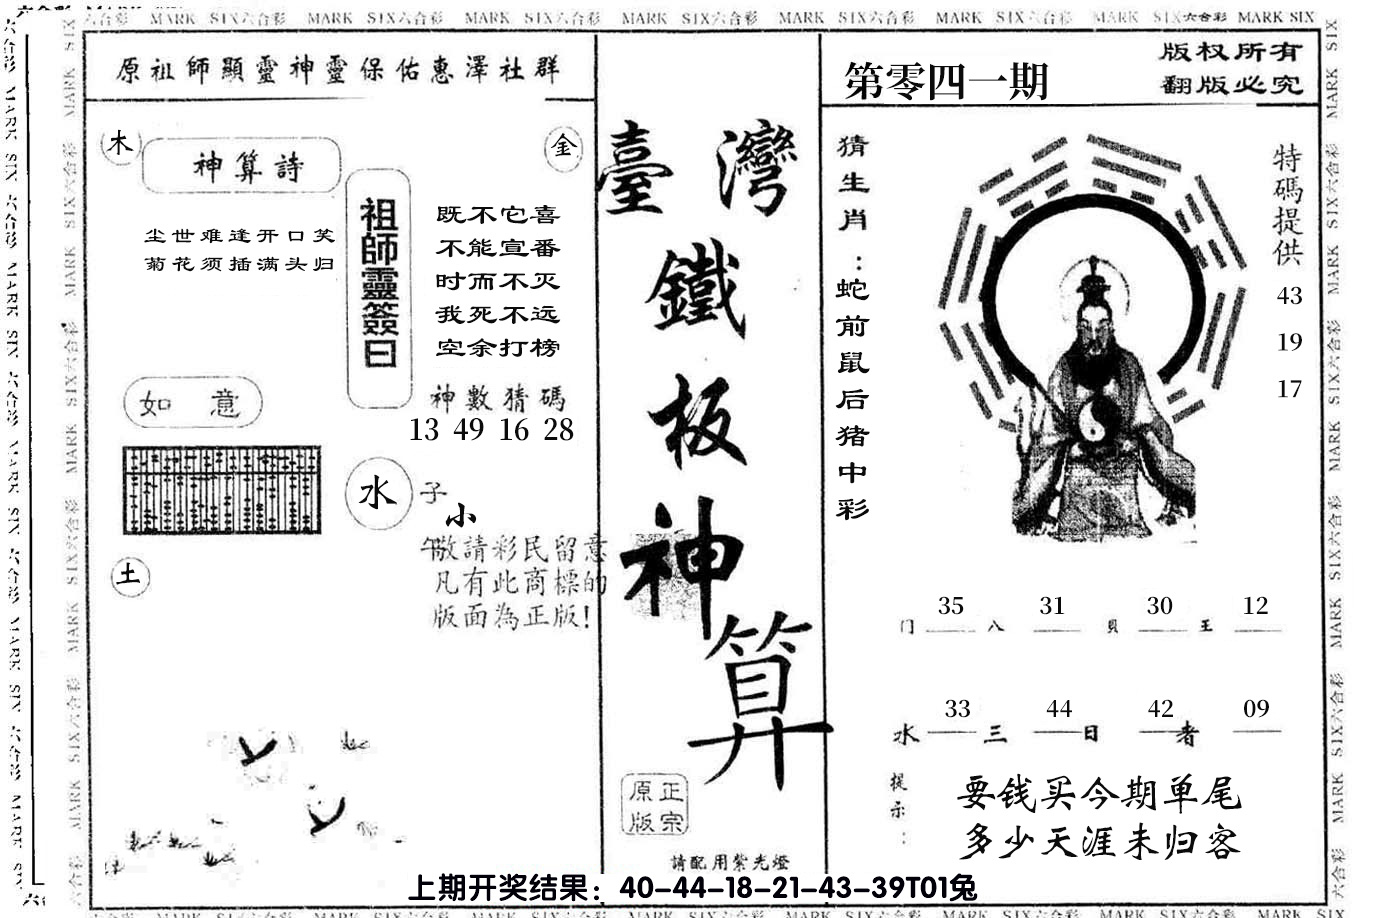 MARK SIX六合彩 MARK SIX六合彩 MARK SIX六合彩 MARK SIX六合彩 MARK SIX六合彩 MARK SIX六合彩 MARK SIX六合彩 MARK SIX
原祖師顯靈神靈保佑惠澤社群
木
神算詩
金
尘世难逢开口笑
菊花须插满头归
祖師靈簽曰
既不它喜
不能宣番
时而不灭
我死不远
空余打榜
神數猜碼
13 49 16 28
如意
水
子
小
午
敬請彩民留意
凡有此商標的
版面為正版!
土
臺灣
鐵
板
神
算
正宗
原版
請配用紫光燈
第零四一期
版权所有
翻版必究
猜生肖:蛇前鼠后猪中彩
特碼提供
43
19
17
门 35 八 31 貝 30 王 12
水 33 三 44 日 42 者 09
提示:
要钱买今期单尾
多少天涯未归客
上期开奖结果：40-44-18-21-43-39T01兔